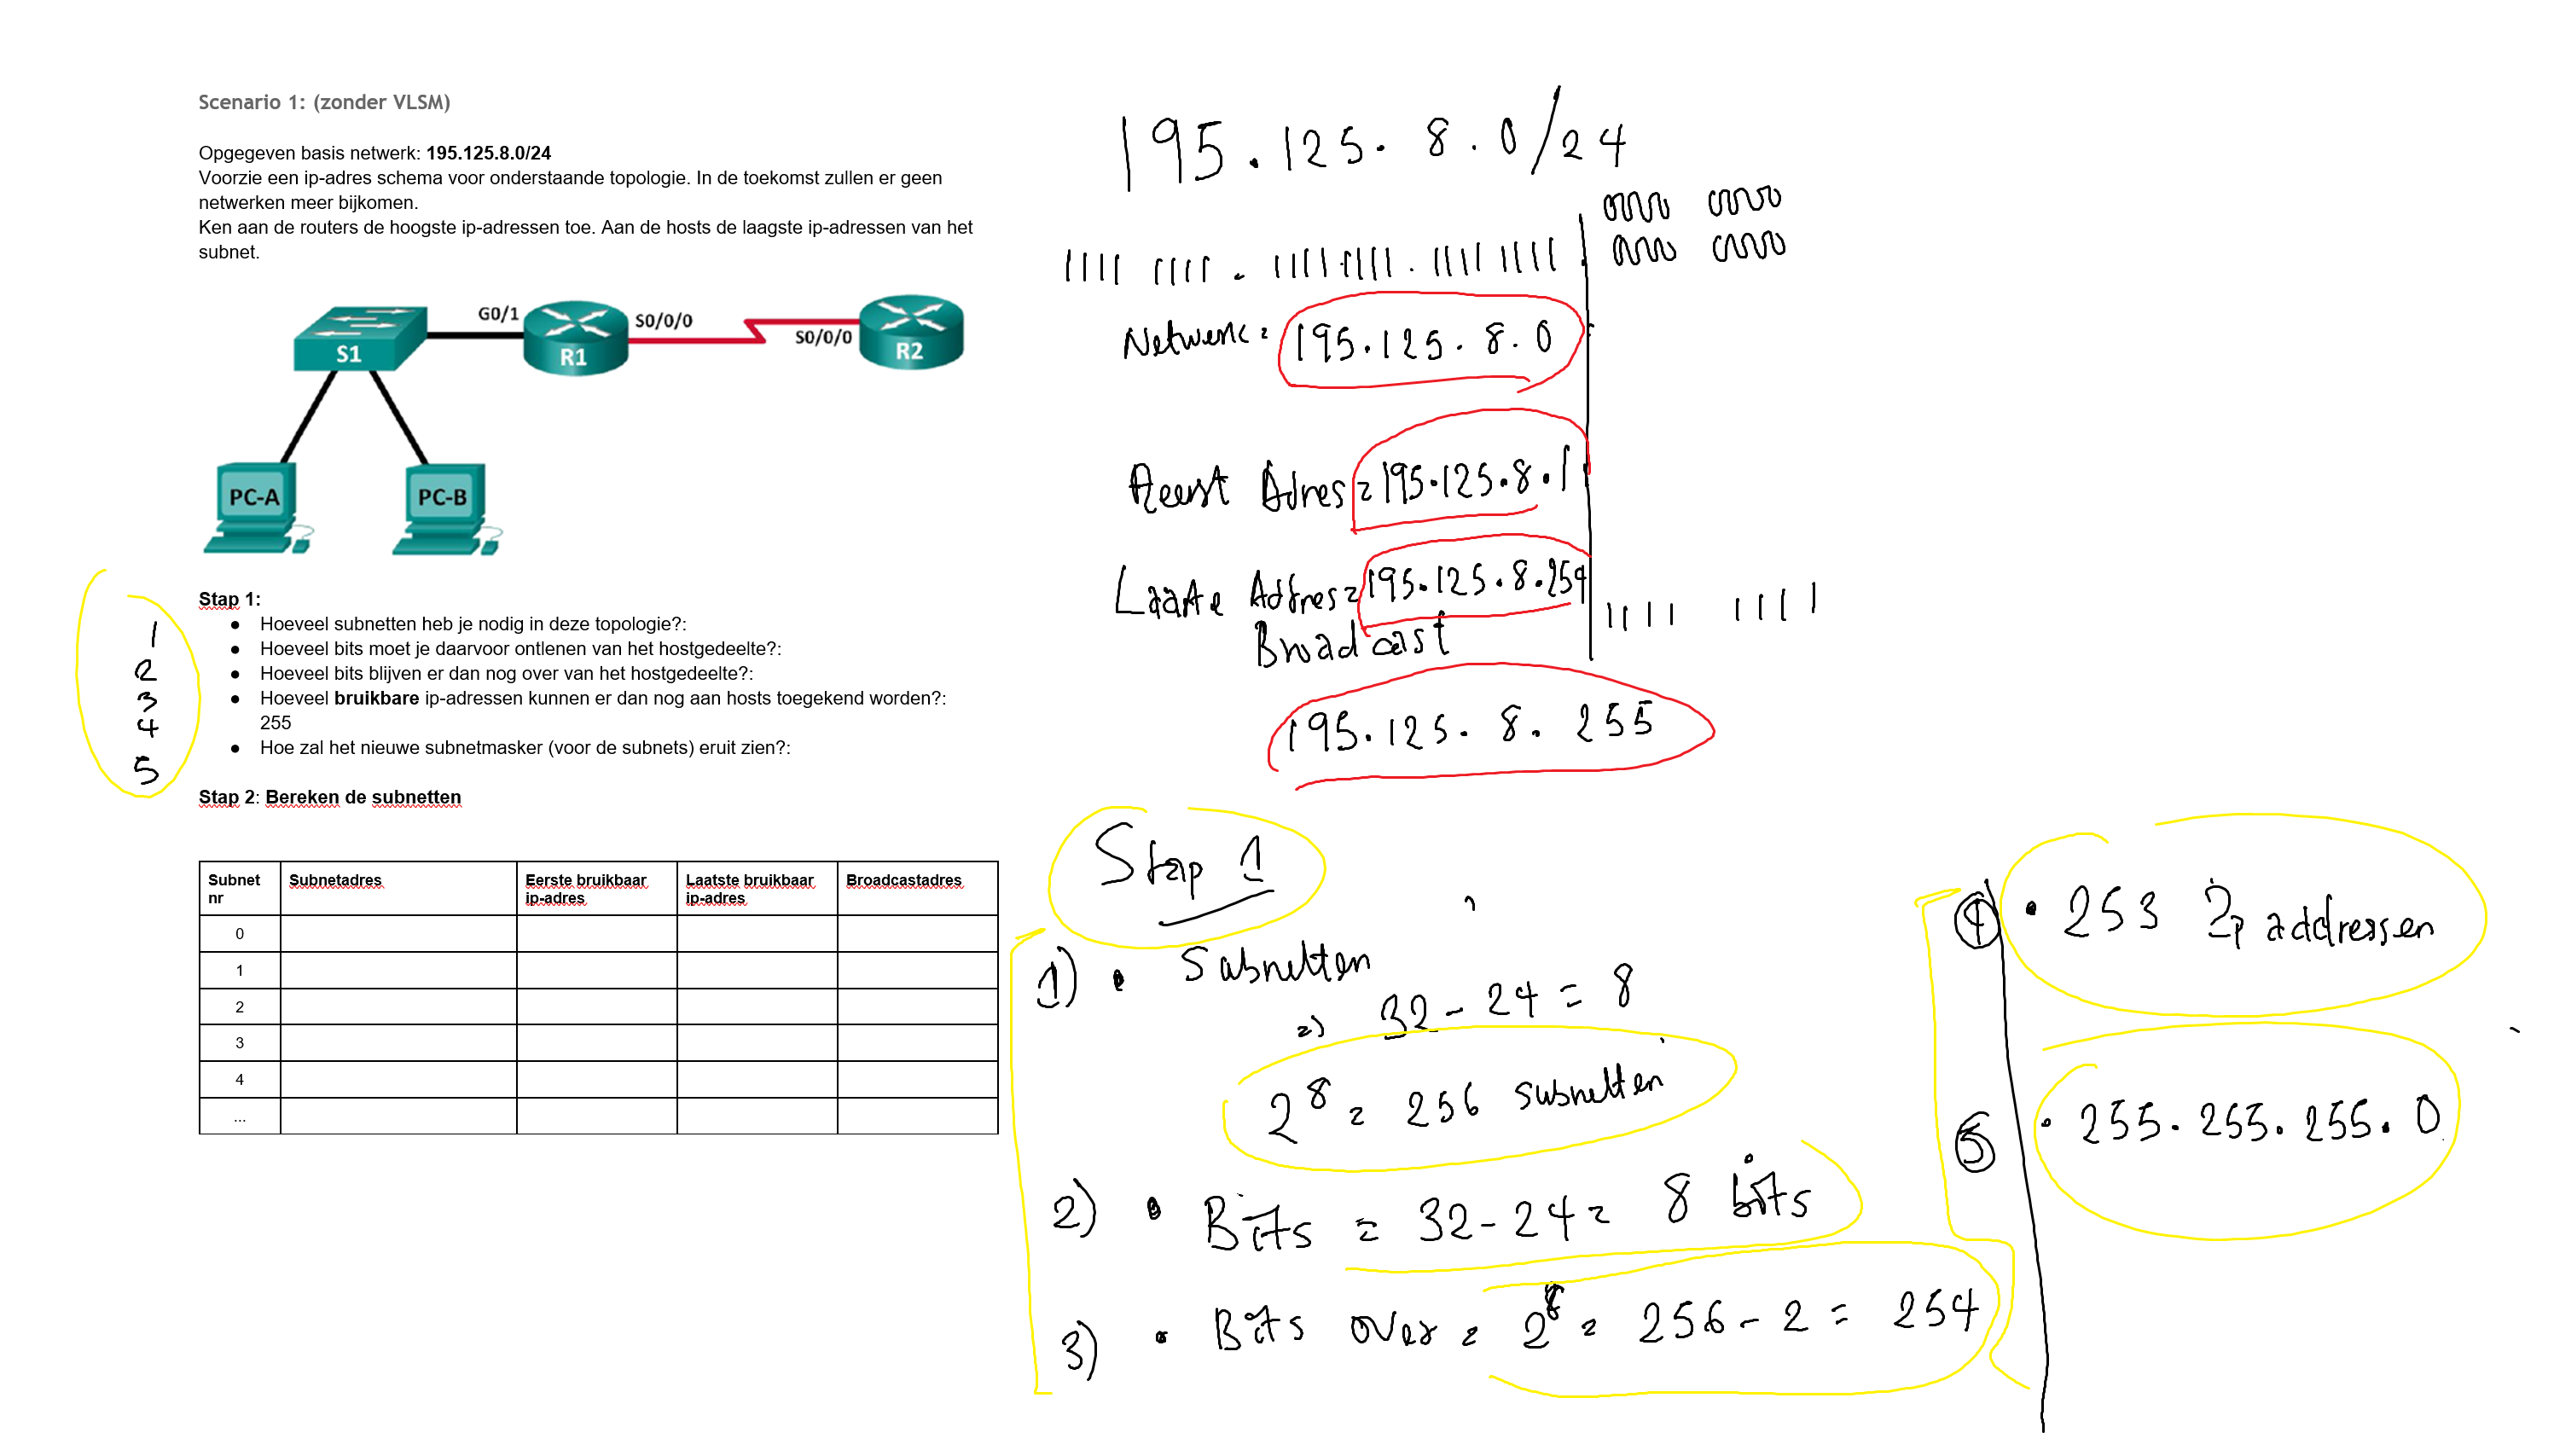 Scenario 1: (zonder VLSM)
Opgegeven basis netwerk: 195.125.8.0/24
Voorzie een ip-adres schema voor onderstaande topologie. In de toekomst zullen er geen
netwerken meer bijkomen.
Ken aan de routers de hoogste ip-adressen toe. Aan de hosts de laagste ip-adressen van het
subnet.
S1
G0/1
R1
S0/0/0
S0/0/0
R2
PC-A
PC-B
Stap 1:
1 • Hoeveel subnetten heb je nodig in deze topologie?:
2 • Hoeveel bits moet je daarvoor ontlenen van het hostgedeelte?:
3 • Hoeveel bits blijven er dan nog over van het hostgedeelte?:
4 • Hoeveel bruikbare ip-adressen kunnen er dan nog aan hosts toegekend worden?:
255
5 • Hoe zal het nieuwe subnetmasker (voor de subnets) eruit zien?:
Stap 2: Bereken de subnetten
Subnet nr Subnetadres Eerste bruikbaar ip-adres Laatste bruikbaar ip-adres Broadcastadres
0
1
2
3
4
...
195.125.8.0/24
0000 0000
1111 1111 . 1111 1111 . 1111 1111 . 0000 0000
Netwerk = 195.125.8.0
Eerst Adres = 195.125.8.1
Adres = 195.125.8.254
1111 1111
Broadcast
195.125.8.255
Stap 1
1) • Subnetten
=) 32 - 24 = 8
2^8 = 256 subnetten
2) • Bits = 32 - 24 = 8 bits
3) • Bits over = 2^8 = 256 - 2 = 254
4 • 253 Ip addressen
5 • 255.255.255.0